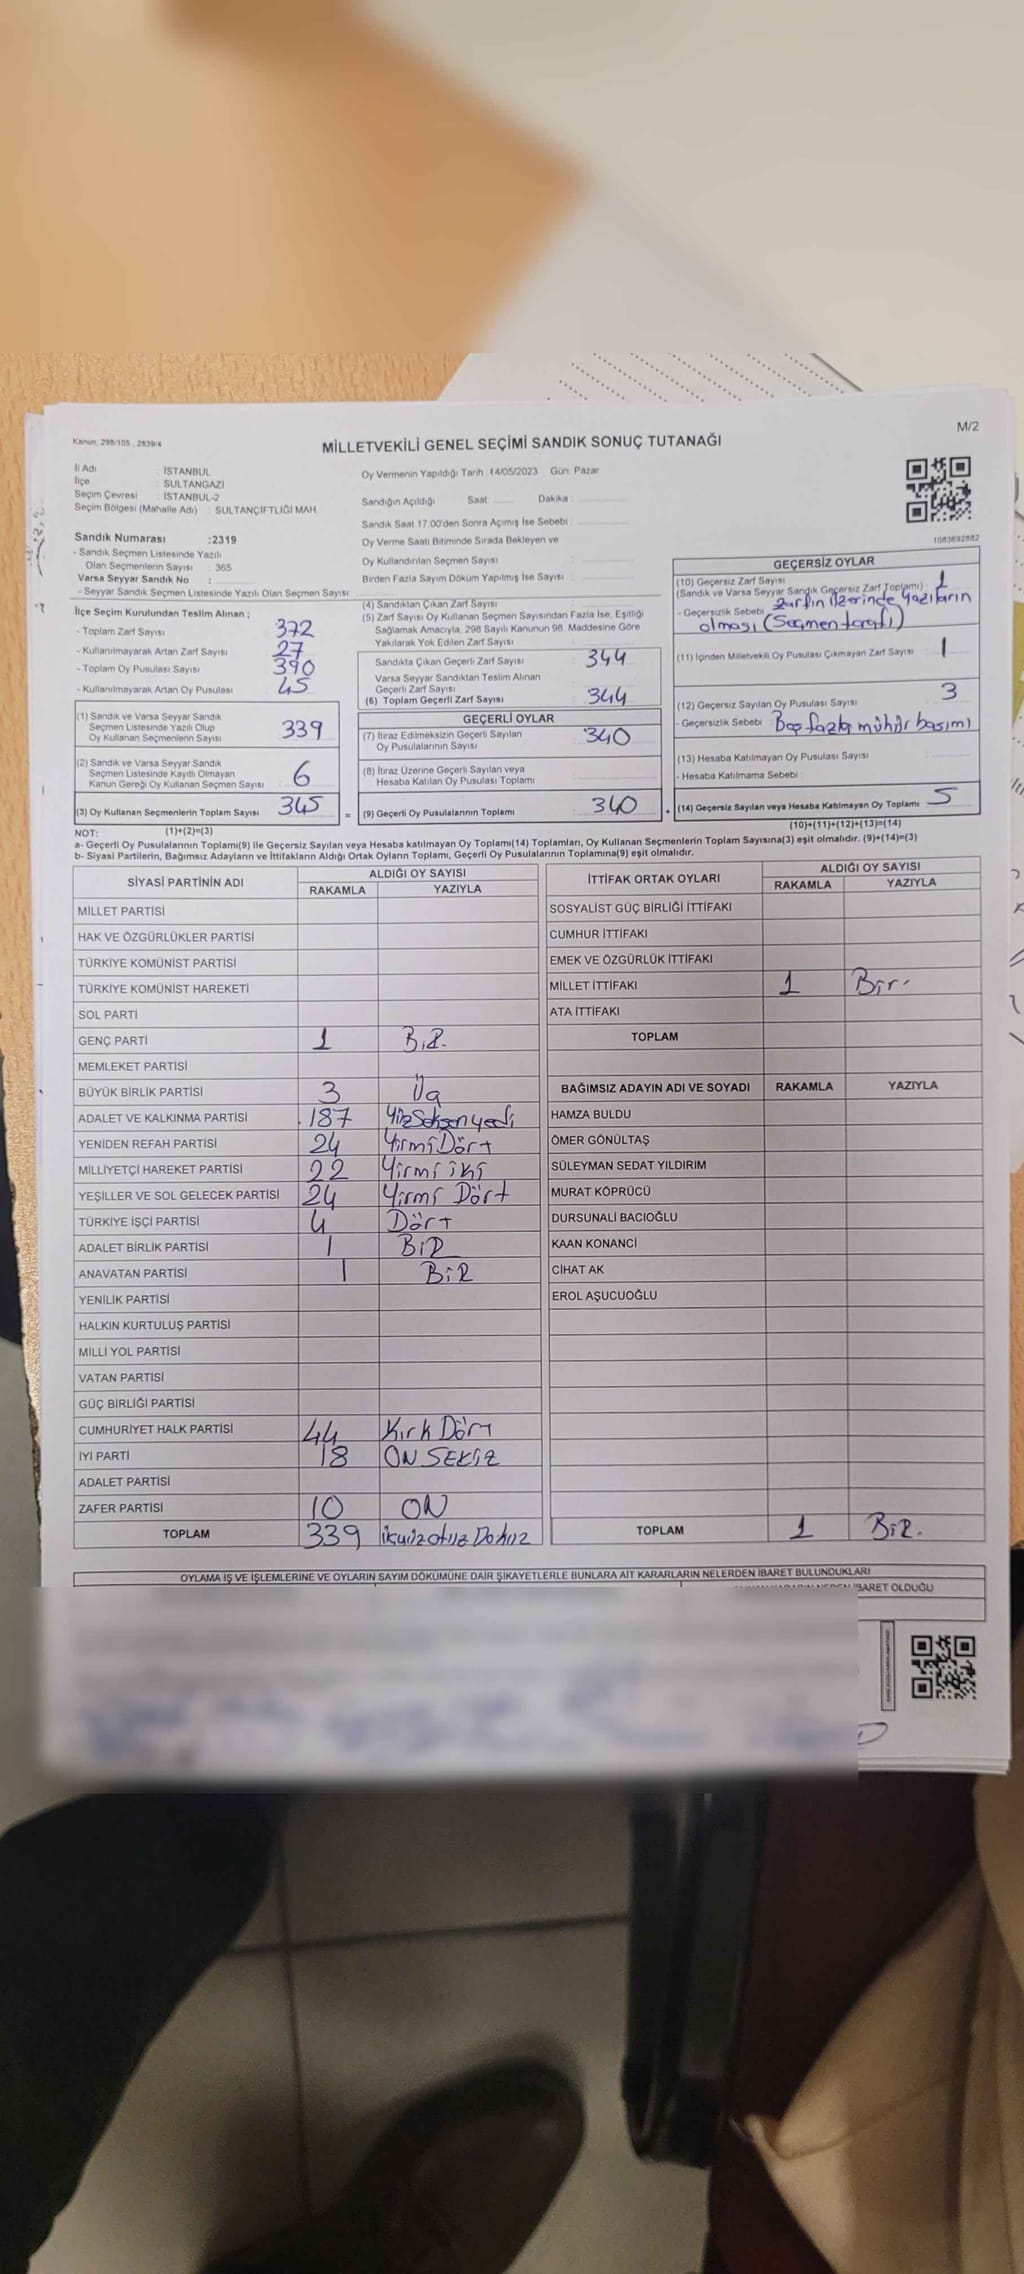 Kanun, 298/105 , 2839/4
M/2
MİLLETVEKİLİ GENEL SEÇİMİ SANDIK SONUÇ TUTANAĞI
İl Adı : İSTANBUL
İlçe : SULTANGAZİ
Seçim Çevresi : İSTANBUL-2
Seçim Bölgesi (Mahalle Adı) : SULTANÇİFTLİĞİ MAH.
Oy Vermenin Yapıldığı Tarih :14/05/2023 Gün: Pazar
Sandığın Açıldığı Saat Dakika :
Sandık Saat 17:00'den Sonra Açımış İse Sebebi :
Oy Verme Saati Bitiminde Sırada Bekleyen ve
Oy Kullandırılan Seçmen Sayısı :
Birden Fazla Sayım Döküm Yapılmış İse Sayısı :
1083692882
Sandık Numarası :2319
- Sandık Seçmen Listesinde Yazılı
Olan Seçmenlerin Sayısı : 365
Varsa Seyyar Sandık No :
- Seyyar Sandık Seçmen Listesinde Yazılı Olan Seçmen Sayısı:
İlçe Seçim Kurulundan Teslim Alınan ;
- Toplam Zarf Sayısı 372
- Kullanılmayarak Artan Zarf Sayısı 27
- Toplam Oy Pusulası Sayısı 390
- Kullanılmayarak Artan Oy Pusulası 45
(1) Sandık ve Varsa Seyyar Sandık
Seçmen Listesinde Yazılı Olup
Oy Kullanan Seçmenlerin Sayısı 339
(2) Sandık ve Varsa Seyyar Sandık
Seçmen Listesinde Kayıtlı Olmayan
Kanun Gereği Oy Kullanan Seçmen Sayısı 6
(3) Oy Kullanan Seçmenlerin Toplam Sayısı 345
(4) Sandıktan Çıkan Zarf Sayısı :
(5) Zarf Sayısı Oy Kullanan Seçmen Sayısından Fazla İse, Eşitliği
Sağlamak Amacıyla, 298 Sayılı Kanunun 98. Maddesine Göre
Yakılarak Yok Edilen Zarf Sayısı :
Sandıkta Çıkan Geçerli Zarf Sayısı : 344
Varsa Seyyar Sandıktan Teslim Alınan
Geçerli Zarf Sayısı :
(6) Toplam Geçerli Zarf Sayısı : 344
GEÇERLİ OYLAR
(7) İtiraz Edilmeksizin Geçerli Sayılan
Oy Pusulalarının Sayısı : 340
(8) İtiraz Üzerine Geçerli Sayılan veya
Hesaba Katılan Oy Pusulası Toplamı :
= (9) Geçerli Oy Pusulalarının Toplamı : 340 +
GEÇERSİZ OYLAR
(10) Geçersiz Zarf Sayısı
(Sandık ve Varsa Seyyar Sandık Geçersiz Zarf Toplamı) : 1
- Geçersizlik Sebebi : Zarfın üzerinde yazıların
olması (Seçmen tarafı)
(11) İçinden Milletvekili Oy Pusulası Çıkmayan Zarf Sayısı : 1
(12) Geçersiz Sayılan Oy Pusulası Sayısı : 3
- Geçersizlik Sebebi : fazla mühür basımı
(13) Hesaba Katılmayan Oy Pusulası Sayısı :
- Hesaba Katılmama Sebebi :
(14) Geçersiz Sayılan veya Hesaba Katılmayan Oy Toplamı 5
NOT: (1)+(2)=(3)
(10)+(11)+(12)+(13)=(14)
a- Geçerli Oy Pusulalarının Toplamı(9) ile Geçersiz Sayılan veya Hesaba katılmayan Oy Toplamı(14) Toplamları, Oy Kullanan Seçmenlerin Toplam Sayısına(3) eşit olmalıdır. (9)+(14)=(3)
b- Siyasi Partilerin, Bağımsız Adayların ve İttifakların Aldığı Ortak Oyların Toplamı, Geçerli Oy Pusulalarının Toplamına(9) eşit olmalıdır.
SİYASİ PARTİNİN ADI ALDIĞI OY SAYISI
RAKAMLA YAZIYLA
MİLLET PARTİSİ
HAK VE ÖZGÜRLÜKLER PARTİSİ
TÜRKİYE KOMÜNİST PARTİSİ
TÜRKİYE KOMÜNİST HAREKETİ
SOL PARTİ
GENÇ PARTİ 1 BİR.
MEMLEKET PARTİSİ
BÜYÜK BİRLİK PARTİSİ 3 Üç
ADALET VE KALKINMA PARTİSİ 187 YüzSeksenyedi
YENİDEN REFAH PARTİSİ 24 Yirmi Dört
MİLLİYETÇİ HAREKET PARTİSİ 22 Yirmi iki
YEŞİLLER VE SOL GELECEK PARTİSİ 24 Yirmi Dört
TÜRKİYE İŞÇİ PARTİSİ 4 Dört
ADALET BİRLİK PARTİSİ 1 BİR
ANAVATAN PARTİSİ 1 BİR
YENİLİK PARTİSİ
HALKIN KURTULUŞ PARTİSİ
MİLLİ YOL PARTİSİ
VATAN PARTİSİ
GÜÇ BİRLİĞİ PARTİSİ
CUMHURİYET HALK PARTİSİ 44 Kırk Dört
İYİ PARTİ 18 ON SEKİZ
ADALET PARTİSİ
ZAFER PARTİSİ 10 ON
TOPLAM 339
İTTİFAK ORTAK OYLARI ALDIĞI OY SAYISI
RAKAMLA YAZIYLA
SOSYALİST GÜÇ BİRLİĞİ İTTİFAKI
CUMHUR İTTİFAKI
EMEK VE ÖZGÜRLÜK İTTİFAKI
MİLLET İTTİFAKI 1 Bir.
ATA İTTİFAKI
TOPLAM
BAĞIMSIZ ADAYIN ADI VE SOYADI RAKAMLA YAZIYLA
HAMZA BULDU
ÖMER GÖNÜLTAŞ
SÜLEYMAN SEDAT YILDIRIM
MURAT KÖPRÜCÜ
DURSUNALİ BACIOĞLU
KAAN KONANCİ
CİHAT AK
EROL AŞUCUOĞLU
TOPLAM 1 BİR.
OYLAMA İŞ VE İŞLEMLERİNE VE OYLARIN SAYIM DÖKÜMÜNE DAİR ŞİKAYETLERLE BUNLARA AİT KARARLARIN NELERDEN İBARET BULUNDUKLARI
İBARET OLDUĞU